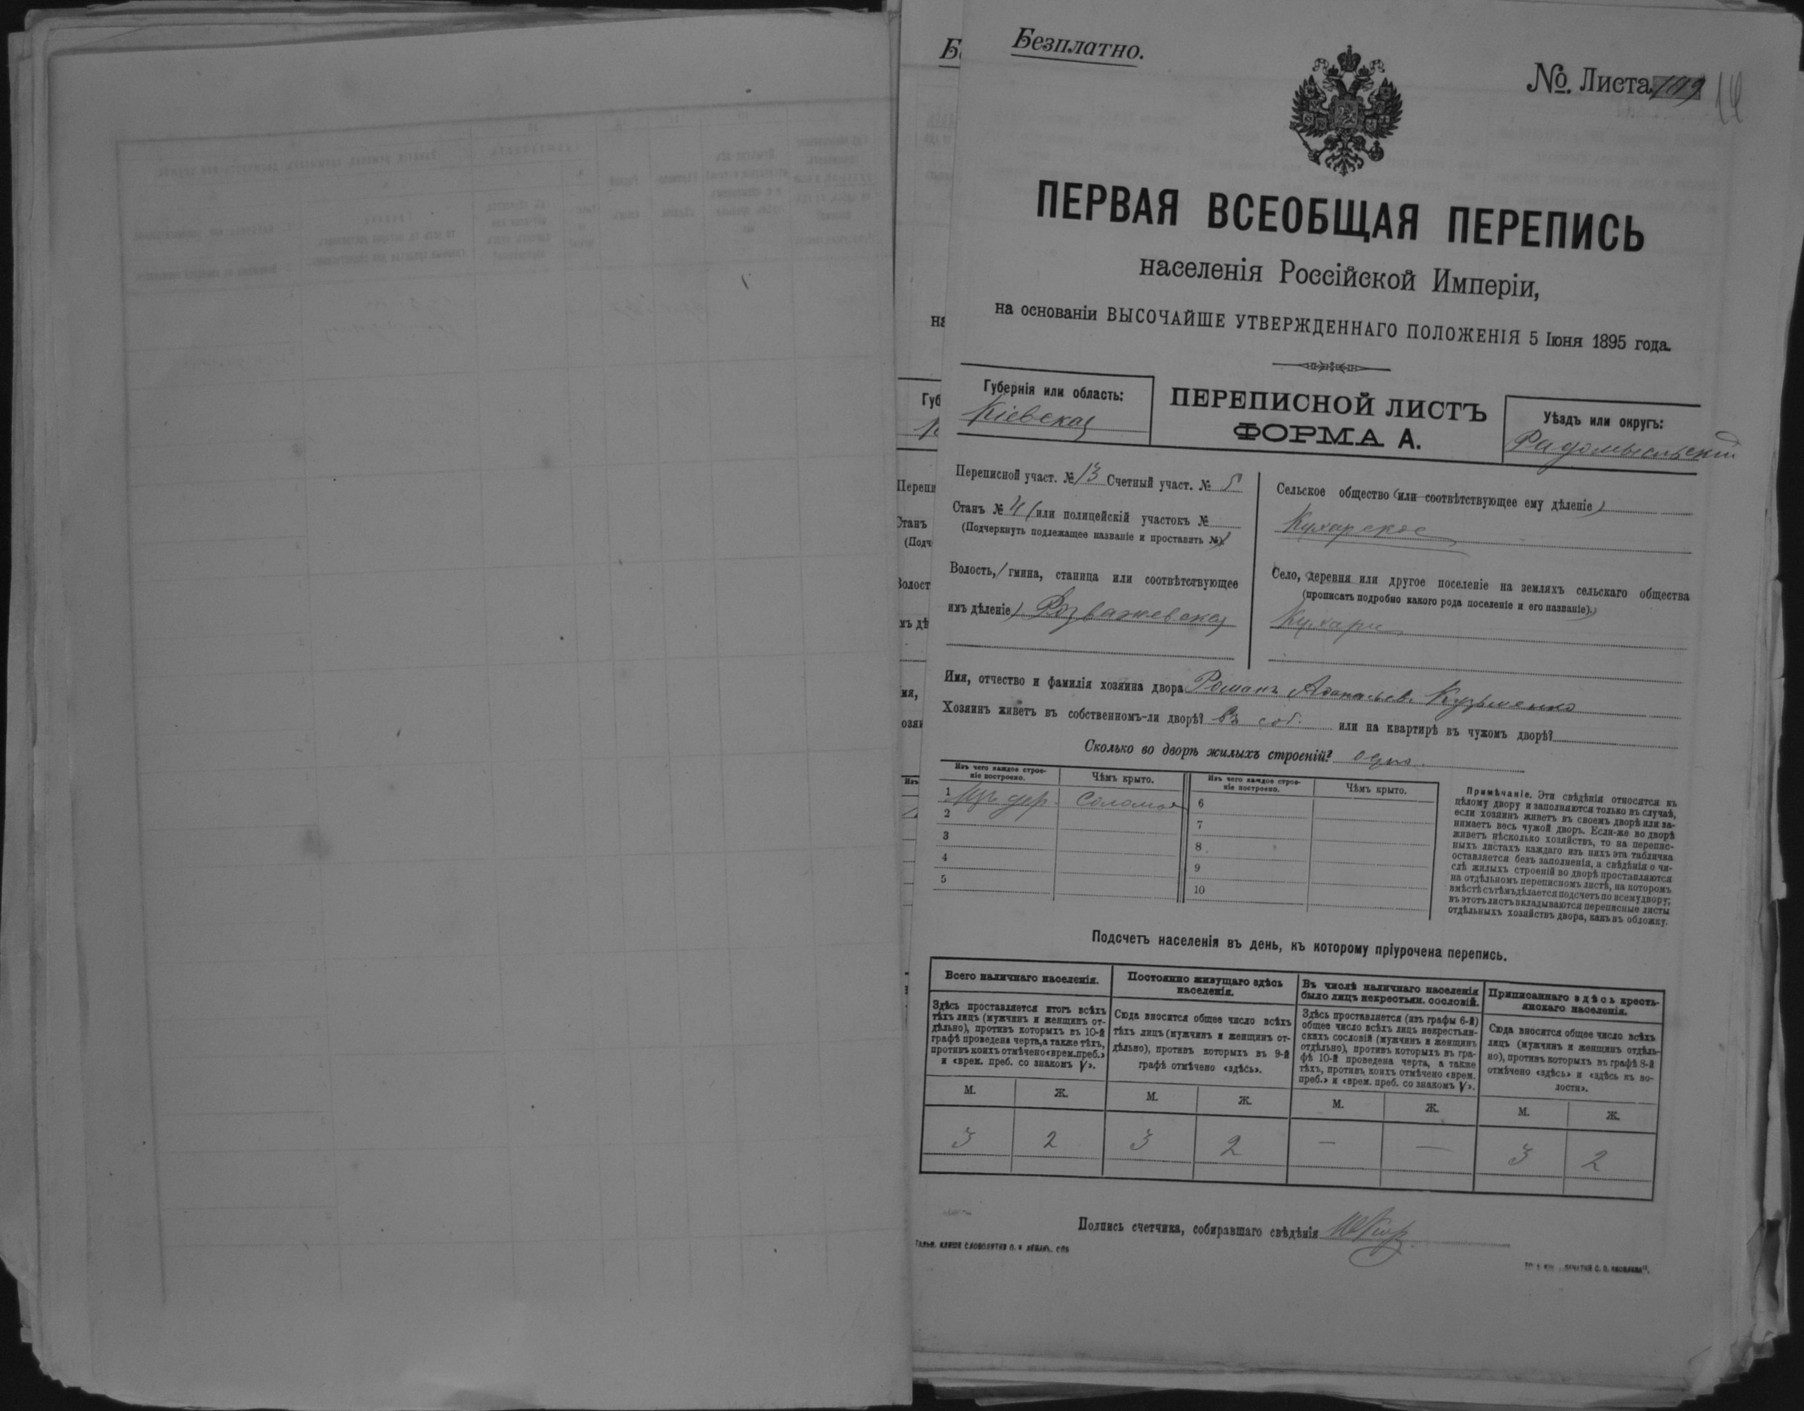 Безплатно.
№. Листа
14
ПЕРВАЯ ВСЕОБЩАЯ ПЕРЕПИСЬ
населенія Россійской Имперіи,
на основаніи ВЫСОЧАЙШЕ УТВЕРЖДЕННАГО ПОЛОЖЕНІЯ 5 Іюня 1895 года.
Губернія или область:
Кіевская
ПЕРЕПИСНОЙ ЛИСТЪ
ФОРМА А.
Уѣздъ или округъ:
Радомысльскій
Переписной участ. № 13 Счетный участ. № 5
Станъ № 4 (или полицейскій участокъ №
(Подчеркнуть подлежащее названіе и проставить №)
Волость, (гмина, станица или соотвѣтствующее
имъ дѣленіе) Розважевская
Сельское общество (или соотвѣтствующее ему дѣленіе)
Кухарское
Село, деревня или другое поселеніе на земляхъ сельскаго общества
(прописать подробно какого рода поселеніе и его названіе).
Кухари
Имя, отчество и фамилія хозяина двора Романъ Кузьменко
Хозяинъ живетъ въ собственномъ-ли дворѣ? въ соб. или на квартирѣ въ чужомъ дворѣ?
Сколько во дворѣ жилыхъ строеній? одно.
Изъ чего каждое строе-
ніе построено.
Чѣмъ крыто.
Изъ чего каждое строе-
ніе построено.
Чѣмъ крыто.
1 Изъ дер. соломою 6
2 7
3 8
4 9
5 10
Примѣчаніе. Эти свѣдѣнія относятся къ
цѣлому двору и заполняются только въ случаѣ,
если хозяинъ живетъ въ своемъ дворѣ или за-
нимаетъ весь чужой дворъ. Если-же во дворѣ
живетъ нѣсколько хозяйствъ, то на перепис-
ныхъ листахъ каждаго изъ нихъ эта табличка
оставляется безъ заполненія, а свѣдѣнія о чи-
слѣ жилыхъ строеній во дворѣ проставляются
на отдѣльномъ переписномъ листѣ, на которомъ
вмѣстѣ съ тѣмъ дѣлается подсчетъ по всему двору;
въ этотъ листъ вкладываются переписные листы
отдѣльныхъ хозяйствъ двора, какъ въ обложку.
Подсчетъ населенія въ день, къ которому пріурочена перепись.
Всего наличнаго населенія.
Здѣсь проставляется итогъ всѣхъ
тѣхъ лицъ (мужчинъ и женщинъ от-
дѣльно), противъ которыхъ въ 10-й
графѣ проведена черта, а также тѣхъ,
противъ коихъ отмѣчено «врем. преб.»
и «врем. преб. со знакомъ V».
Постоянно живущаго здѣсь
населенія.
Сюда вносится общее число всѣхъ
тѣхъ лицъ (мужчинъ и женщинъ от-
дѣльно), противъ которыхъ въ 9-й
графѣ отмѣчено «здѣсь».
Въ числѣ наличнаго населенія
было лицъ некрестьян. сословій.
Здѣсь проставляется (изъ графы 6-й)
общее число всѣхъ лицъ некрестьян-
скихъ сословій (мужчинъ и женщинъ
отдѣльно), противъ которыхъ въ гра-
фѣ 10-й проведена черта, а также
тѣхъ, противъ коихъ отмѣчено «врем.
преб.» и «врем. преб. со знакомъ V».
Приписаннаго здѣсь кресть-
янскаго населенія.
Сюда вносится общее число всѣхъ
лицъ (мужчинъ и женщинъ отдѣль-
но), противъ которыхъ въ графѣ 8-й
отмѣчено «здѣсь» и «здѣсь въ во-
лости».
М. Ж. М. Ж. М. Ж. М. Ж.
3 2 3 2 — — 3 2
Подпись счетчика, собиравшаго свѣдѣнія